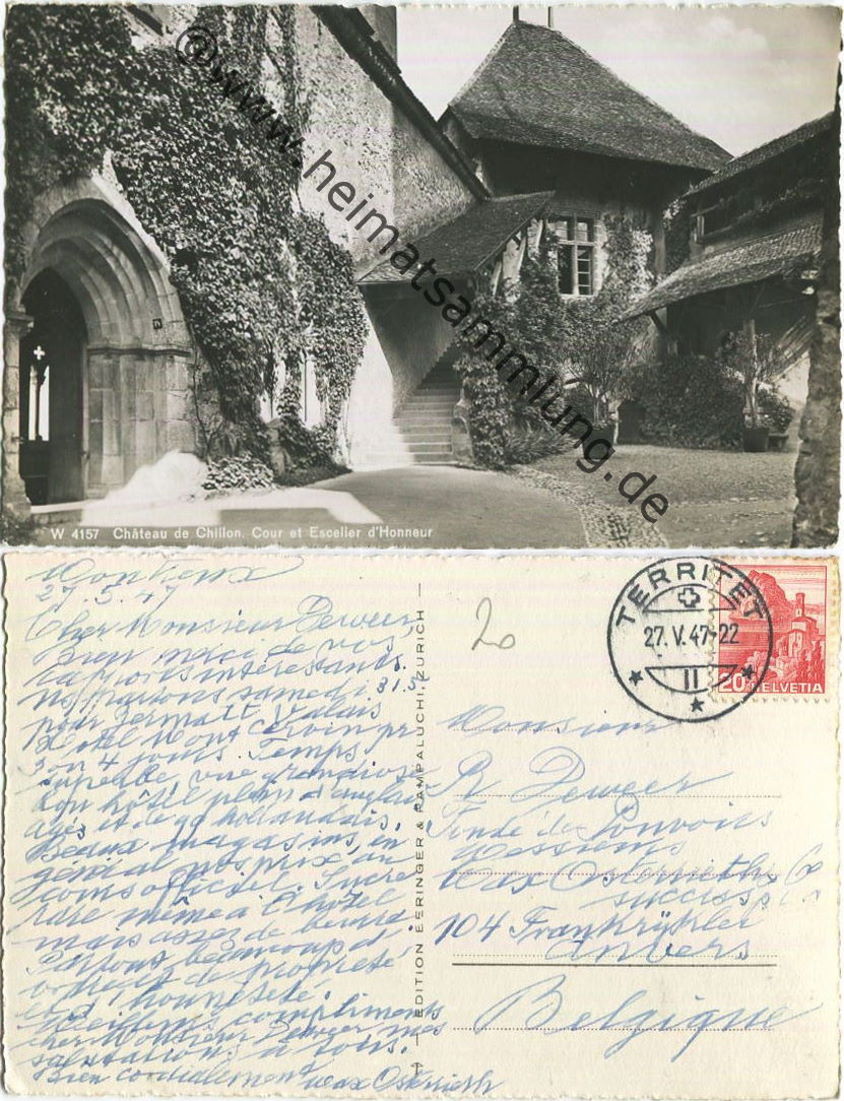 © www.heimatsammlung.de
W 4157 Château de Chillon. Cour et Escalier d'Honneur
Montreux
27.5.47
Cher Monsieur Deweer,
Bien merci de vos
rapports intéressants.
Nous partons samedi 31.5.
pour Zermatt Valais
Hotel Mont Cervin pr
3 ou 4 jours. Temps
superbe, vue grandiose
Bon hôtel plein d'anglais
agés et de 90 hollandais.
Beaux magasins, en
général nos prix au
cours officiel. Sucre
rare même à l'hôtel
mais assez de beurre
Partout beaucoup d'
ordre, de propreté
et d'honnêteté.
Meilleurs compliments
cher Monsieur Deweer mes
salutations à tous.
Bien cordialement Max Osterrieth
EDITION EERINGER & PAMPALUCHI, ZURICH
20
TERRITET
27.V.47-22
II
20 HELVETIA
Monsieur
R Deweer
Fondé de Pouvoirs
Messieurs
Max Osterrieth & Co
success
104 Frankrijklei
Anvers
Belgique